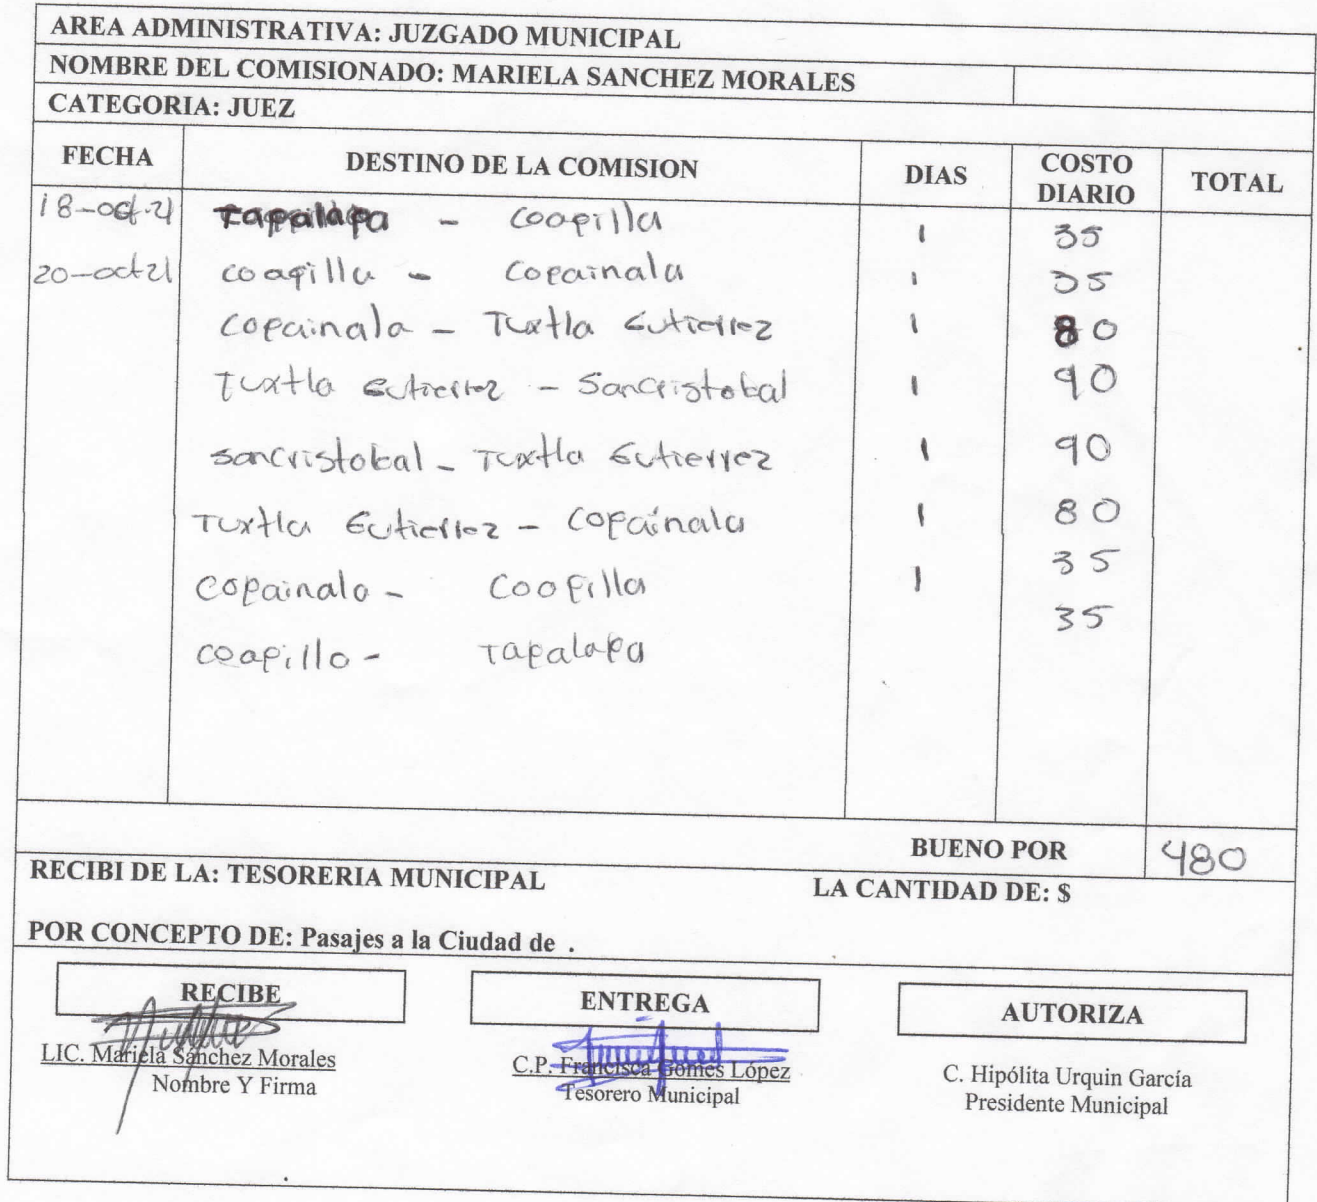 AREA ADMINISTRATIVA: JUZGADO MUNICIPAL
NOMBRE DEL COMISIONADO: MARIELA SANCHEZ MORALES
CATEGORIA: JUEZ
FECHA DESTINO DE LA COMISION DIAS COSTO DIARIO TOTAL
18-oct-21 Tapalapa - Coapilla 1 35
20-oct21 coapilla - Copainala 1 35
Copainala - Tuxtla Gutierrez 1 80
Tuxtla Gutierrez - Sancristobal 1 90
sancristobal - Tuxtla Gutierrez 1 90
Tuxtla Gutierrez - Copainala 1 80
Copainala - Coapilla 1 35
coapilla - Tapalapa 35
BUENO POR 480
RECIBI DE LA: TESORERIA MUNICIPAL LA CANTIDAD DE: $
POR CONCEPTO DE: Pasajes a la Ciudad de .
RECIBE ENTREGA AUTORIZA
LIC. Mariela Sánchez Morales C.P. Francisca Gomes López C. Hipólita Urquin García
Nombre Y Firma Tesorero Municipal Presidente Municipal